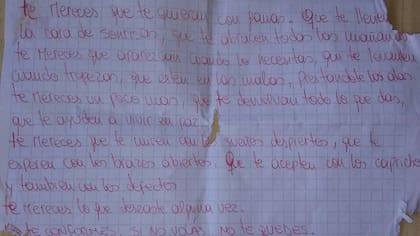 te Mereces que te quieran con ganas. Que te llenen
la cara de sonrisas, que te abracen todas las mañanas
te Mereces que aparezcan cuando lo necesitas, que te levanten
cuando tropezas, que esten en las malas, Prestandote las alas
te Mereces un poco mas, que te devuelvan todo lo que das,
que te ayuden a vivir en paz.
te Mereces que te miren con los sueños despiertos, que te
esperen con los brazos abiertos. Que te acepten con los caprichos
y tambien con los defectos
te Mereces lo que deseaste alguna vez.
te CONFORMES, SI NO VOLAS, NO te QUEDES.